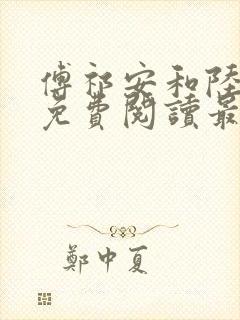 傅祁安和陸
免費閱讀最
鄭中夏